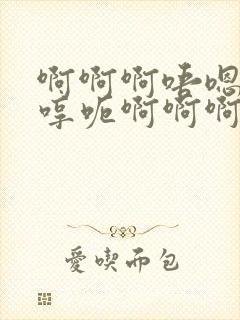 啊啊啊唔嗯
哼呃啊啊啊
愛喫面包